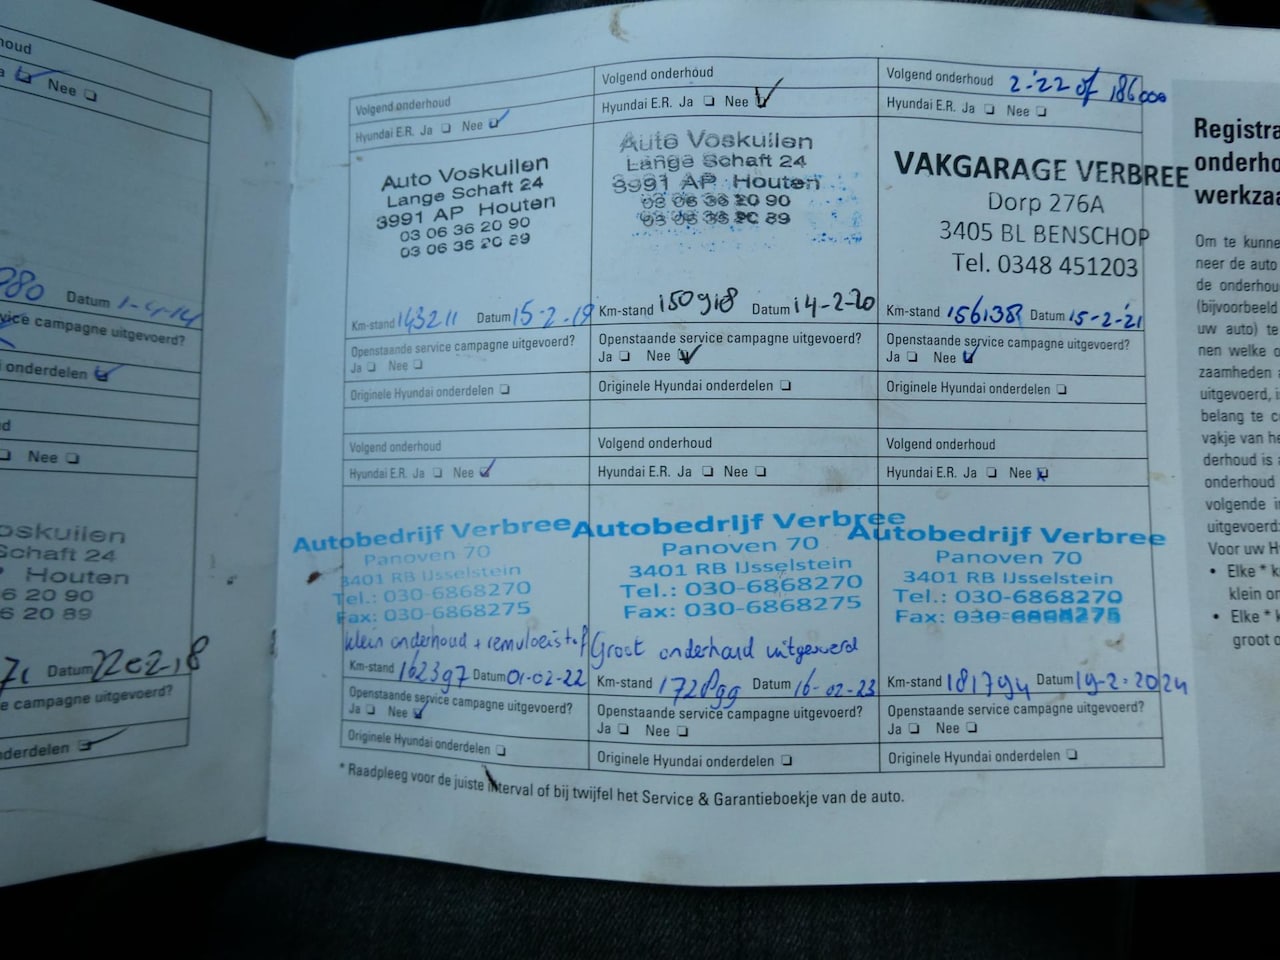 houd
a Nee
980 Datum 1-4-14
vice campagne uitgevoerd?
onderdelen
d
Nee
oskuilen
Schaft 24
Houten
6 20 90
6 20 89
Datum 22e2-18
e campagne uitgevoerd?
nderdelen
Volgend onderhoud
Hyundai E.R. Ja Nee
Auto Voskuilen
Lange Schaft 24
3991 AP Houten
03 06 36 20 90
03 06 36 20 89
Km-stand 143211 Datum 15-2-19
Openstaande service campagne uitgevoerd?
Ja Nee
Originele Hyundai onderdelen
Volgend onderhoud
Hyundai E.R. Ja Nee
Auto Voskuilen
Lange Schaft 24
3991 AP Houten
03 06 36 20 90
03 06 36 20 89
Km-stand 150918 Datum 14-2-20
Openstaande service campagne uitgevoerd?
Ja Nee
Originele Hyundai onderdelen
Volgend onderhoud 2-'22 of 186000
Hyundai E.R. Ja Nee
VAKGARAGE VERBREE
Dorp 276A
3405 BL BENSCHOP
Tel. 0348 451203
Km-stand Datum 15-2-'21
Openstaande service campagne uitgevoerd?
Ja Nee
Originele Hyundai onderdelen
Volgend onderhoud
Hyundai E.R. Ja Nee
Autobedrijf Verbree
Panoven 70
3401 RB IJsselstein
Tel.: 030-6868270
Fax: 030-6868275
klein onderhoud + remvloeistof
Km-stand 162397 Datum 01-02-22
Openstaande service campagne uitgevoerd?
Ja Nee
Originele Hyundai onderdelen
Volgend onderhoud
Hyundai E.R. Ja Nee
Autobedrijf Verbree
Panoven 70
3401 RB IJsselstein
Tel.: 030-6868270
Fax: 030-6868275
Groot onderhoud uitgevoerd
Km-stand 172899 Datum 16-02-23
Openstaande service campagne uitgevoerd?
Ja Nee
Originele Hyundai onderdelen
Volgend onderhoud
Hyundai E.R. Ja Nee
Autobedrijf Verbree
Panoven 70
3401 RB IJsselstein
Tel.: 030-6868270
Fax: 030-6868275
Km-stand 181794 Datum 19-2-2024
Openstaande service campagne uitgevoerd?
Ja Nee
Originele Hyundai onderdelen
* Raadpleeg voor de juiste interval of bij twijfel het Service & Garantieboekje van de auto.
Registra
onderho
werkzaa
Om te kunne
neer de auto
de onderhou
(bijvoorbeeld
uw auto) te
nen welke o
zaamheden a
uitgevoerd, is
belang te c
vakje van he
derhoud is a
onderhoud
volgende in
uitgevoerd:
Voor uw H
• Elke * k
klein on
• Elke * k
groot o